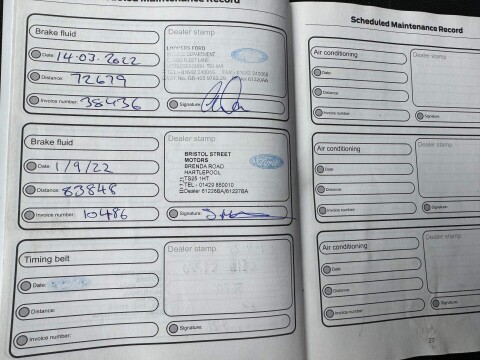 Scheduled Maintenance Record
Brake fluid
Date: 14-03-2022
Distance: 72679
Invoice number: 38436
Dealer stamp
FORD
Signature:
Brake fluid
Date: 1/9/22
Distance: 83848
Invoice number: 10486
Dealer stamp
BRISTOL STREET
MOTORS
BRENDA ROAD
HARTLEPOOL
TS25 1HT
Ford
Signature:
Timing belt
Date:
Distance:
Invoice number:
Dealer stamp
Signature:
Scheduled Maintenance Record
Air conditioning
Date:
Distance:
Invoice number:
Dealer stamp
Signature:
Air conditioning
Date:
Distance:
Invoice number:
Dealer stamp
Signature:
Air conditioning
Date:
Distance:
Invoice number:
Dealer stamp
Signature: